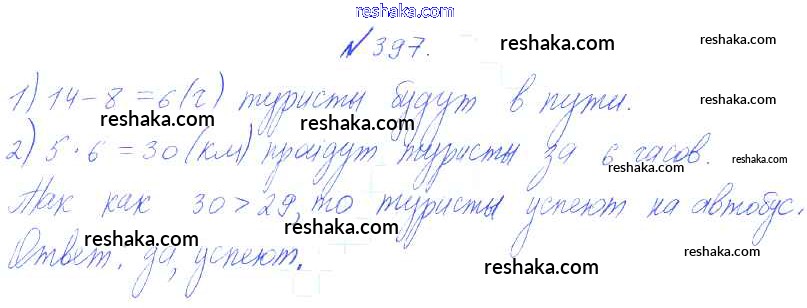 reshaka.com
№ 397. reshaka.com
1) 14 - 8 = 6 (ч) туристы будут в пути.
reshaka.com reshaka.com reshaka.com
2) 5 · 6 = 30 (км) пройдут туристы за 6 часов.
reshaka.com
Так как 30 > 29, то туристы успеют на автобус.
reshaka.com reshaka.com
Ответ: да, успеют.
reshaka.com reshaka.com reshaka.com